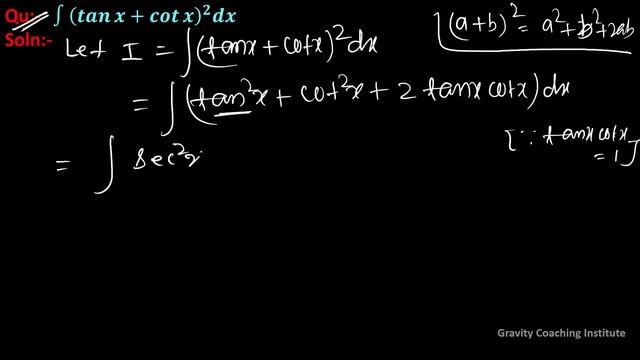 Qu:- ∫ (tan x + cot x)² dx
Soln:- Let I = ∫(tanx + cotx)² dx
(a+b)² = a²+b²+2ab
= ∫(tan²x + cot²x + 2 tanx cotx) dx
[∵ tanx cotx = 1]
= ∫ sec²x
Gravity Coaching Institute